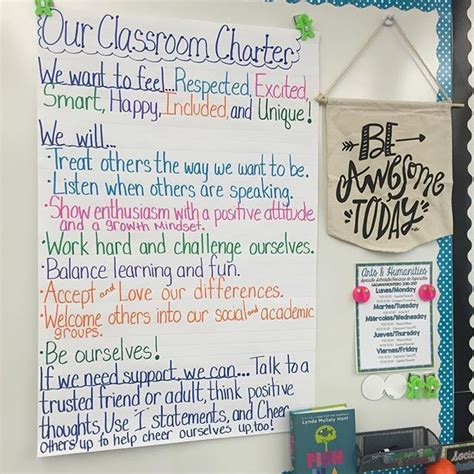 Our Classroom Charter
We want to feel...Respected, Excited,
Smart, Happy, Included, and Unique!
We will...
·Treat others the way we want to be.
·Listen when others are speaking.
·Show enthusiasm with a positive attitude
and a growth mindset.
·Work hard and challenge ourselves.
·Balance learning and fun.
·Accept and Love our differences.
·Welcome others into our social and academic
groups.
·Be ourselves!
If we need support we can... Talk to a
trusted friend or adult, think positive
thoughts, Use "I" statements, and Cheer
others up to help cheer ourselves up, too!
BE
AWESOME
TODAY
Arts & Humanities
Lunes/Monday
Martes/Tuesday
Miércoles/Wednesday
Jueves/Thursday
Viernes/Friday
Lynda Mullaly Hunt
FISH